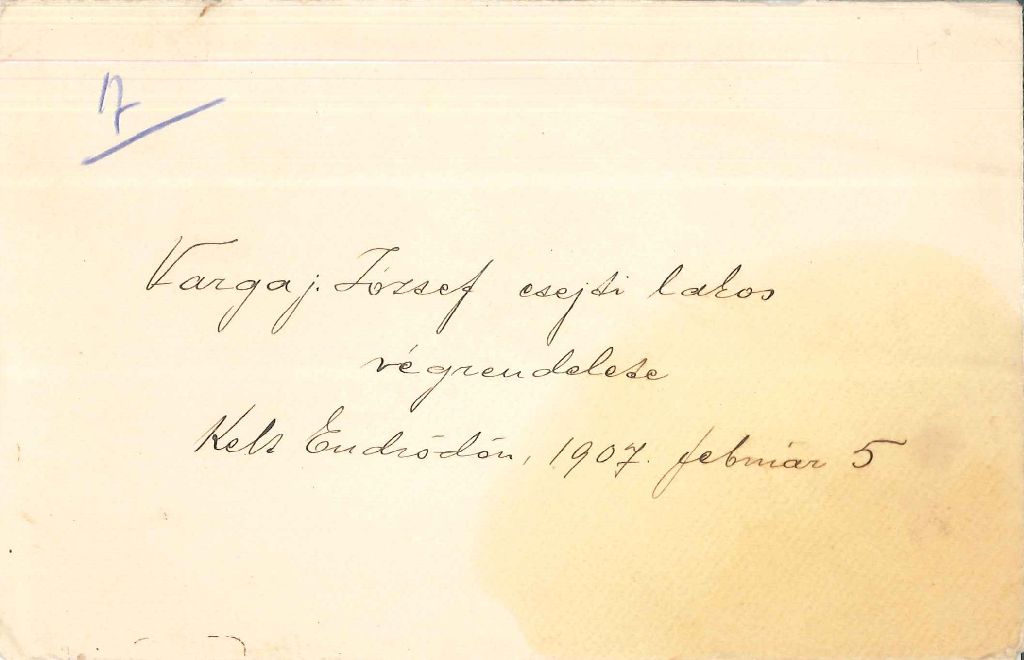 7
Varga j. József csejti lakos
végrendelete
Kelt Endrődön, 1907. február 5